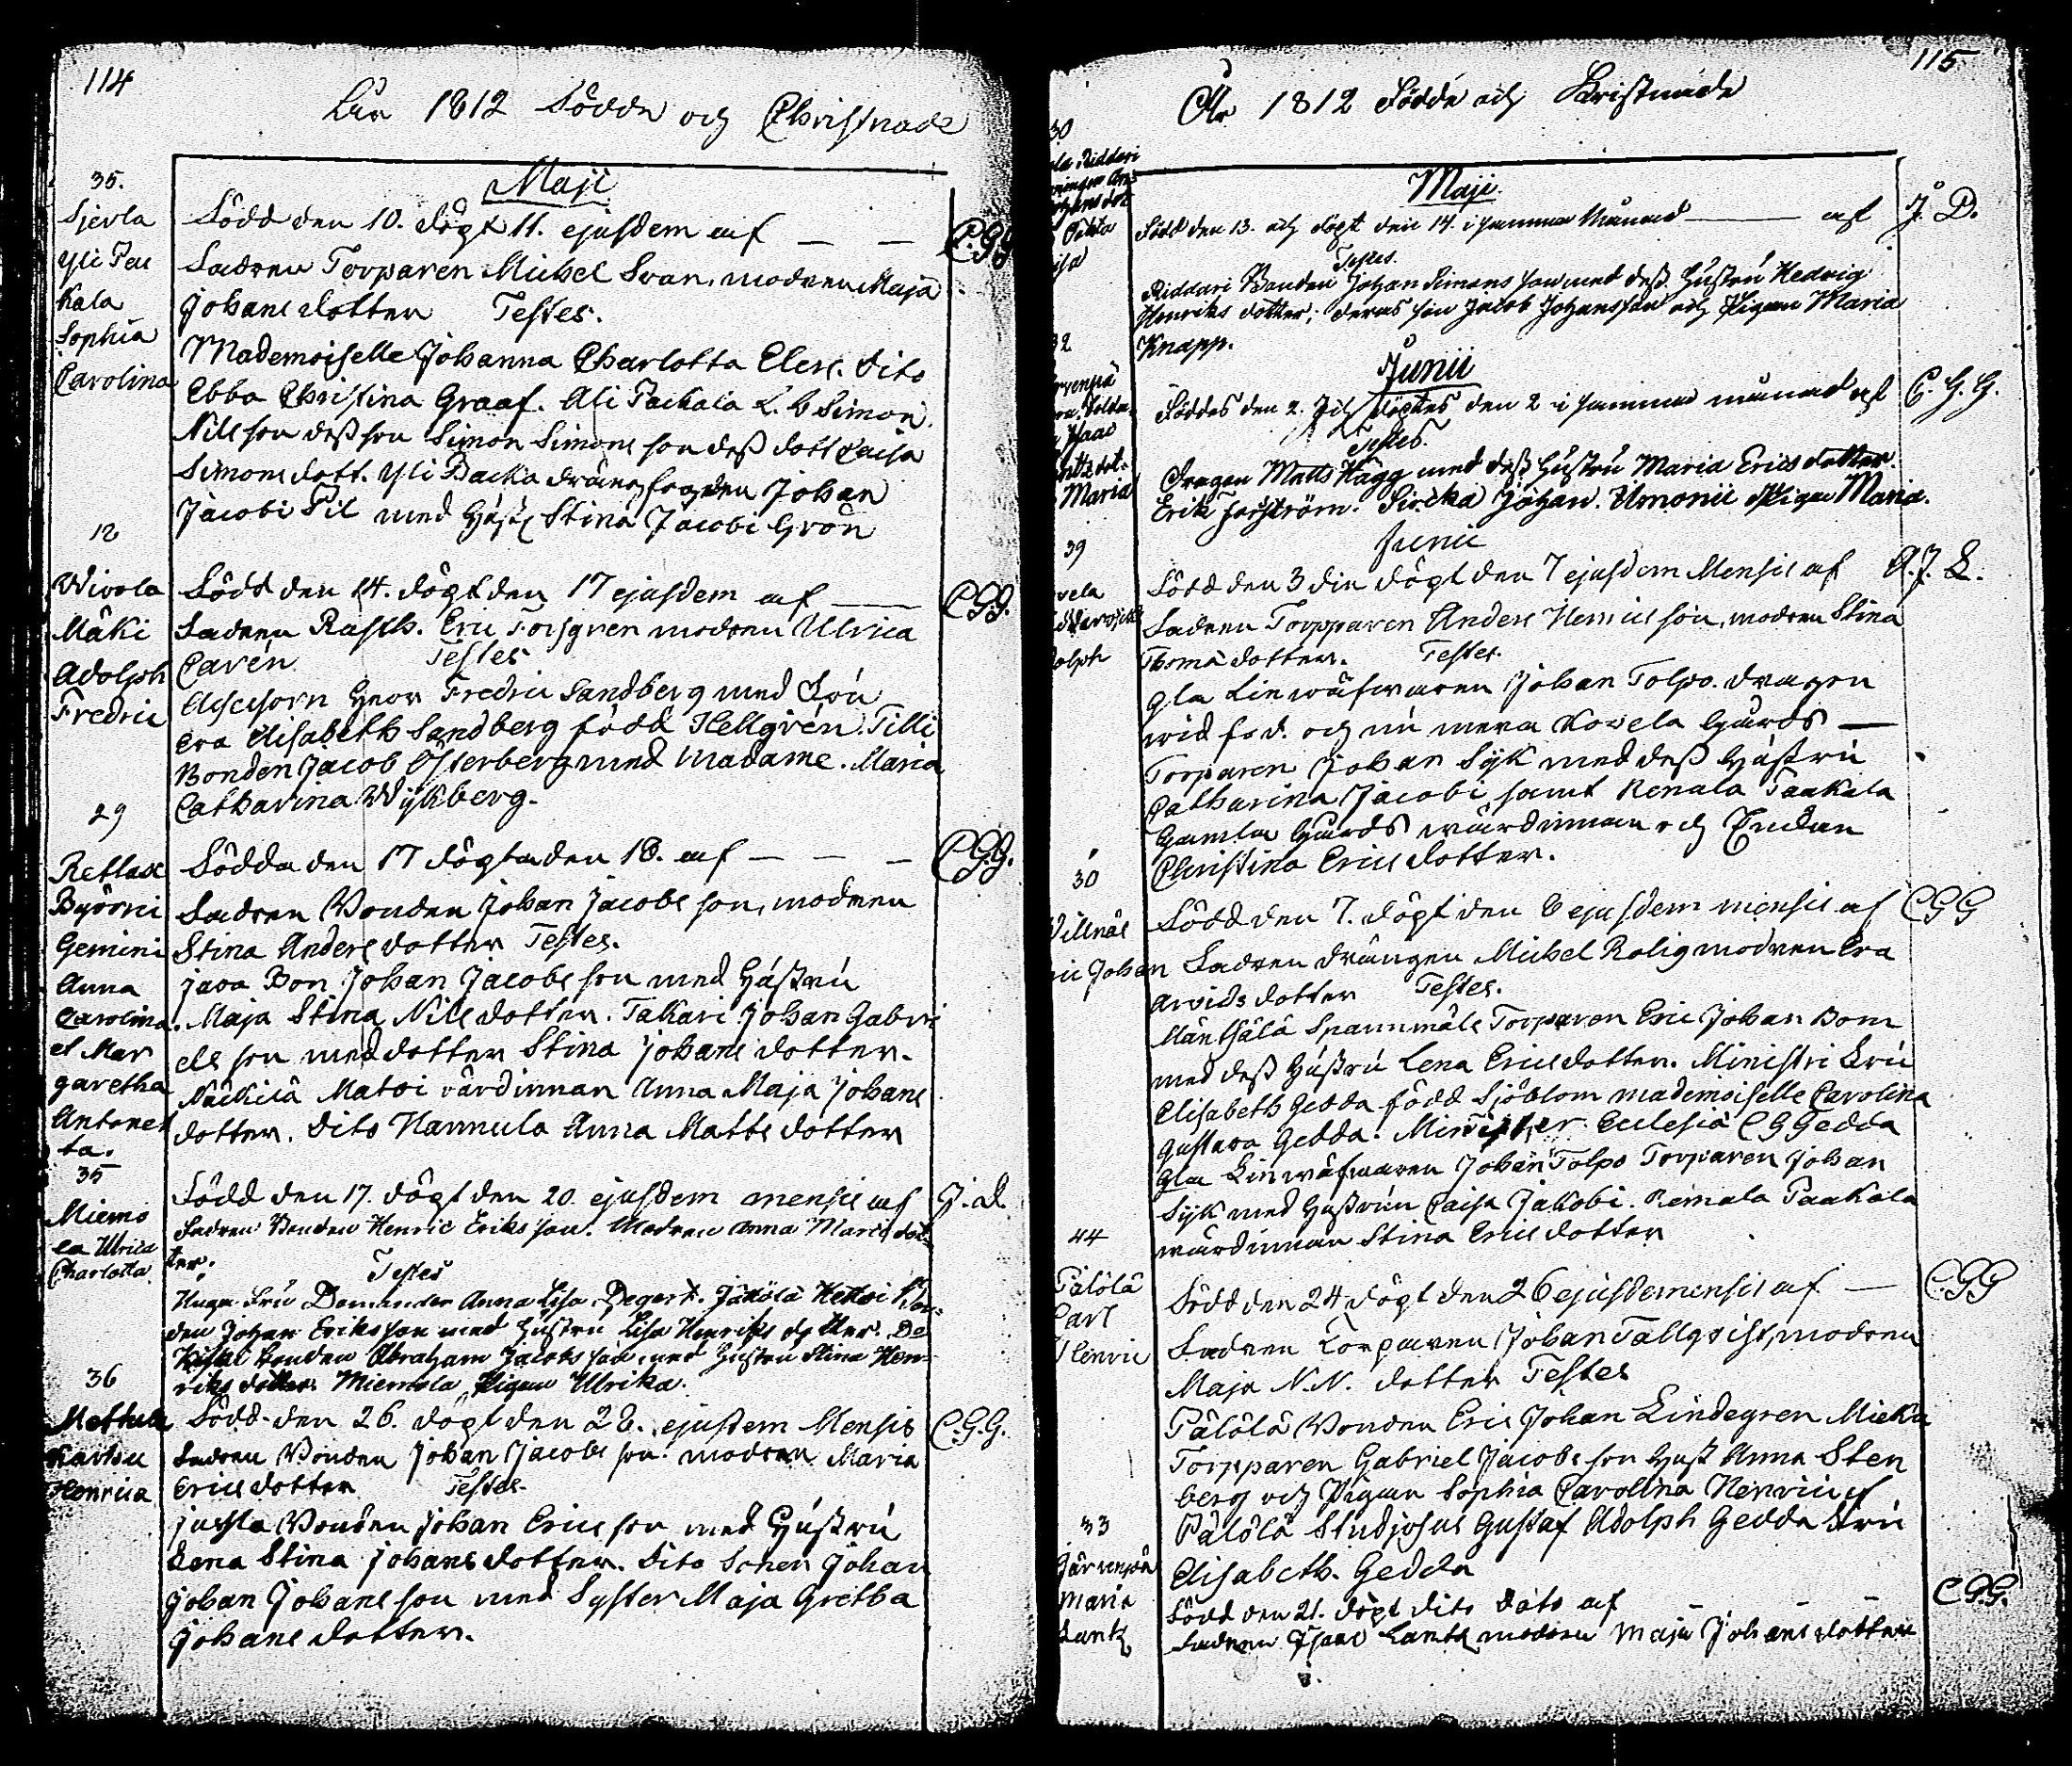 114
År 1812 Födde och Christnade
Maji
35.
Sjevla
Yli Pac
kala
Sophia
Carolina
Född den 10. döpt 11. ejusdem af — — C.G.G.
Fadren Torparen Michel Svan, modren Maja
Johans dotter Testes.
Mademoiselle Johanna Charlotta Elers. dito
Ebba Christina Graaf. Ali Packala L. b Simon
Nils son dess son Simon Simons son dess dott Caisa
Simons dott. Yli Backa drängfogden Johan
Jacobi Pil med Hust Stina Jacobi Grön
12
Wivola
Mäki
Adolph
Fredric
Född den 14. döpt den 17 ejusdem af — C.G.G.
Fadren Rusth. Eric Forsgren modren Ulrica
Cavén Testes
Assessorn Herr Fredric Sandberg med Fru
Eva Elisabeth Sandberg född Hellgrén. Tilli
Bonden Jacob Österberg med Madame. Maria
Catharina Wijkberg.
29
Rettax
Byörni
Gemini
Anna
Carolina
et Mar
garetha
Antonet
ta.
Födda den 17 döpta den 18. af — — — C.G.G.
Fadren Bonden Johan Jacobs son, modren
Stina Anders dotter Testes.
java Bon Johan Jacobs son med Hustru
Maja Stina Nils dotter. Takari Johan Gabri
els son med dotter Stina Johans dotter.
Näckilä Matoi värdinnan Anna Maja Johans
dotter. Dito Hannula Anna Matts dotter
35
Miemo
la Ulrica
Charlotta
Född den 17. döpt den 20. ejusdem mensis af J. D.
Fadren Bonden Henric Eriks son. Modren Anna Maria dot
ter.
Testes
Unga Fru Domander Anna Lisa Degert. Jäkölä Heikoi Bon-
den Johan Eriks son med Hustru Lisa Henriks dotter.
Bonden Abraham Jacobs son, med Hustru Stina Hen-
riks dotter. Miemola Pigan Ulrika.
36
Mettula
Kartu
Henrica
Född den 26. döpt den 28. ejusdem Mensis C.G.G.
Fadren Bonden Johan Jacobs son. modren Maria
Erics dotter Testes.
jussla Bonden Johan Erics son med Hustru
Lena Stina Johans dotter. Dito Sonen Johan
Johan Johans son med Syster Maja Gretha
Johans dotter.
115
År 1812 Födde och Kristnade
30
Riddari
Maji.
Född den 13. och döpt den 14. i samma Månad — af J. D.
Testes.
Riddari Bonden Johan Simons son med dess Hustru Hedvig
Henriks dotter; deras son Jacob Johansson och Pigan Maria
Knapp.
32
Maria
Junii
Föddes den 2. och döptes den 2 i samma månad af C. G. G.
Testes.
Dragon Matts Hägg med dess Hustru Maria Erics dotter.
Erik Forström. Sirckka Johan. Simonii Pigan Maria.
39
vela
olph
Junii
Född den 3 die döpt den 7 ejusdem Mensis af A. J. L.
Fadren Torpparen Anders Henrics son, modren Stina
Thomä dotter. Testes.
Gla Linwäfwaren Johan Tolpo. dragon
wid förd. och nu mera Kovela Gårds —
Torparen Johan Sijk med dess Hustru
Catharina Jacobi samt Remala Paakala
Gamla Gårds wärdinnan och Enckan
Christina Erics dotter.
30
Villnäs
ric Johan
Född den 7. döpt den 8 ejusdem mensis af C G G
Fadren drängen Michel Rolig modren Eva
Arvids dotter Testes.
Mäntsälä Spannmåls Torparen Eric Johan Bom
med dess Hustru Lena Erics dotter. Ministri Fru
Elisabeth Gedda född Sjöblom mademoiselle Carolina
Gustava Gedda. Minister Eclesiä C G Gedda
Gla Linwäfwaren Johan Tolpo Torparen Johan
Sijk med Hustrun Caisa Jakobi. Remala Paakala
wärdinnan Stina Erics dotter
44
Pälölä
Carl
Henric
Född den 24 döpt den 26 ejusdemensis af — C.G.G
Fadren Torparen Johan Tallqvist, modren
Maja N.N. dotter Testes
Pälölä Bonden Eric Johan Lindegren Micku
Torpparen Gabriel Jacobs son Hust Anna Sten
berg och Pigan Sophia Carolina Henrici
Pälölä Studjosus Gustaf Adolph Gedda Fru
Elisabeth. Gedda
33
Järvenpä
Maria
Lantz
Född den 21. döpt dito dato af — — C.G.G.
Fadren Isaac Lantz modren Maja Johans dotter